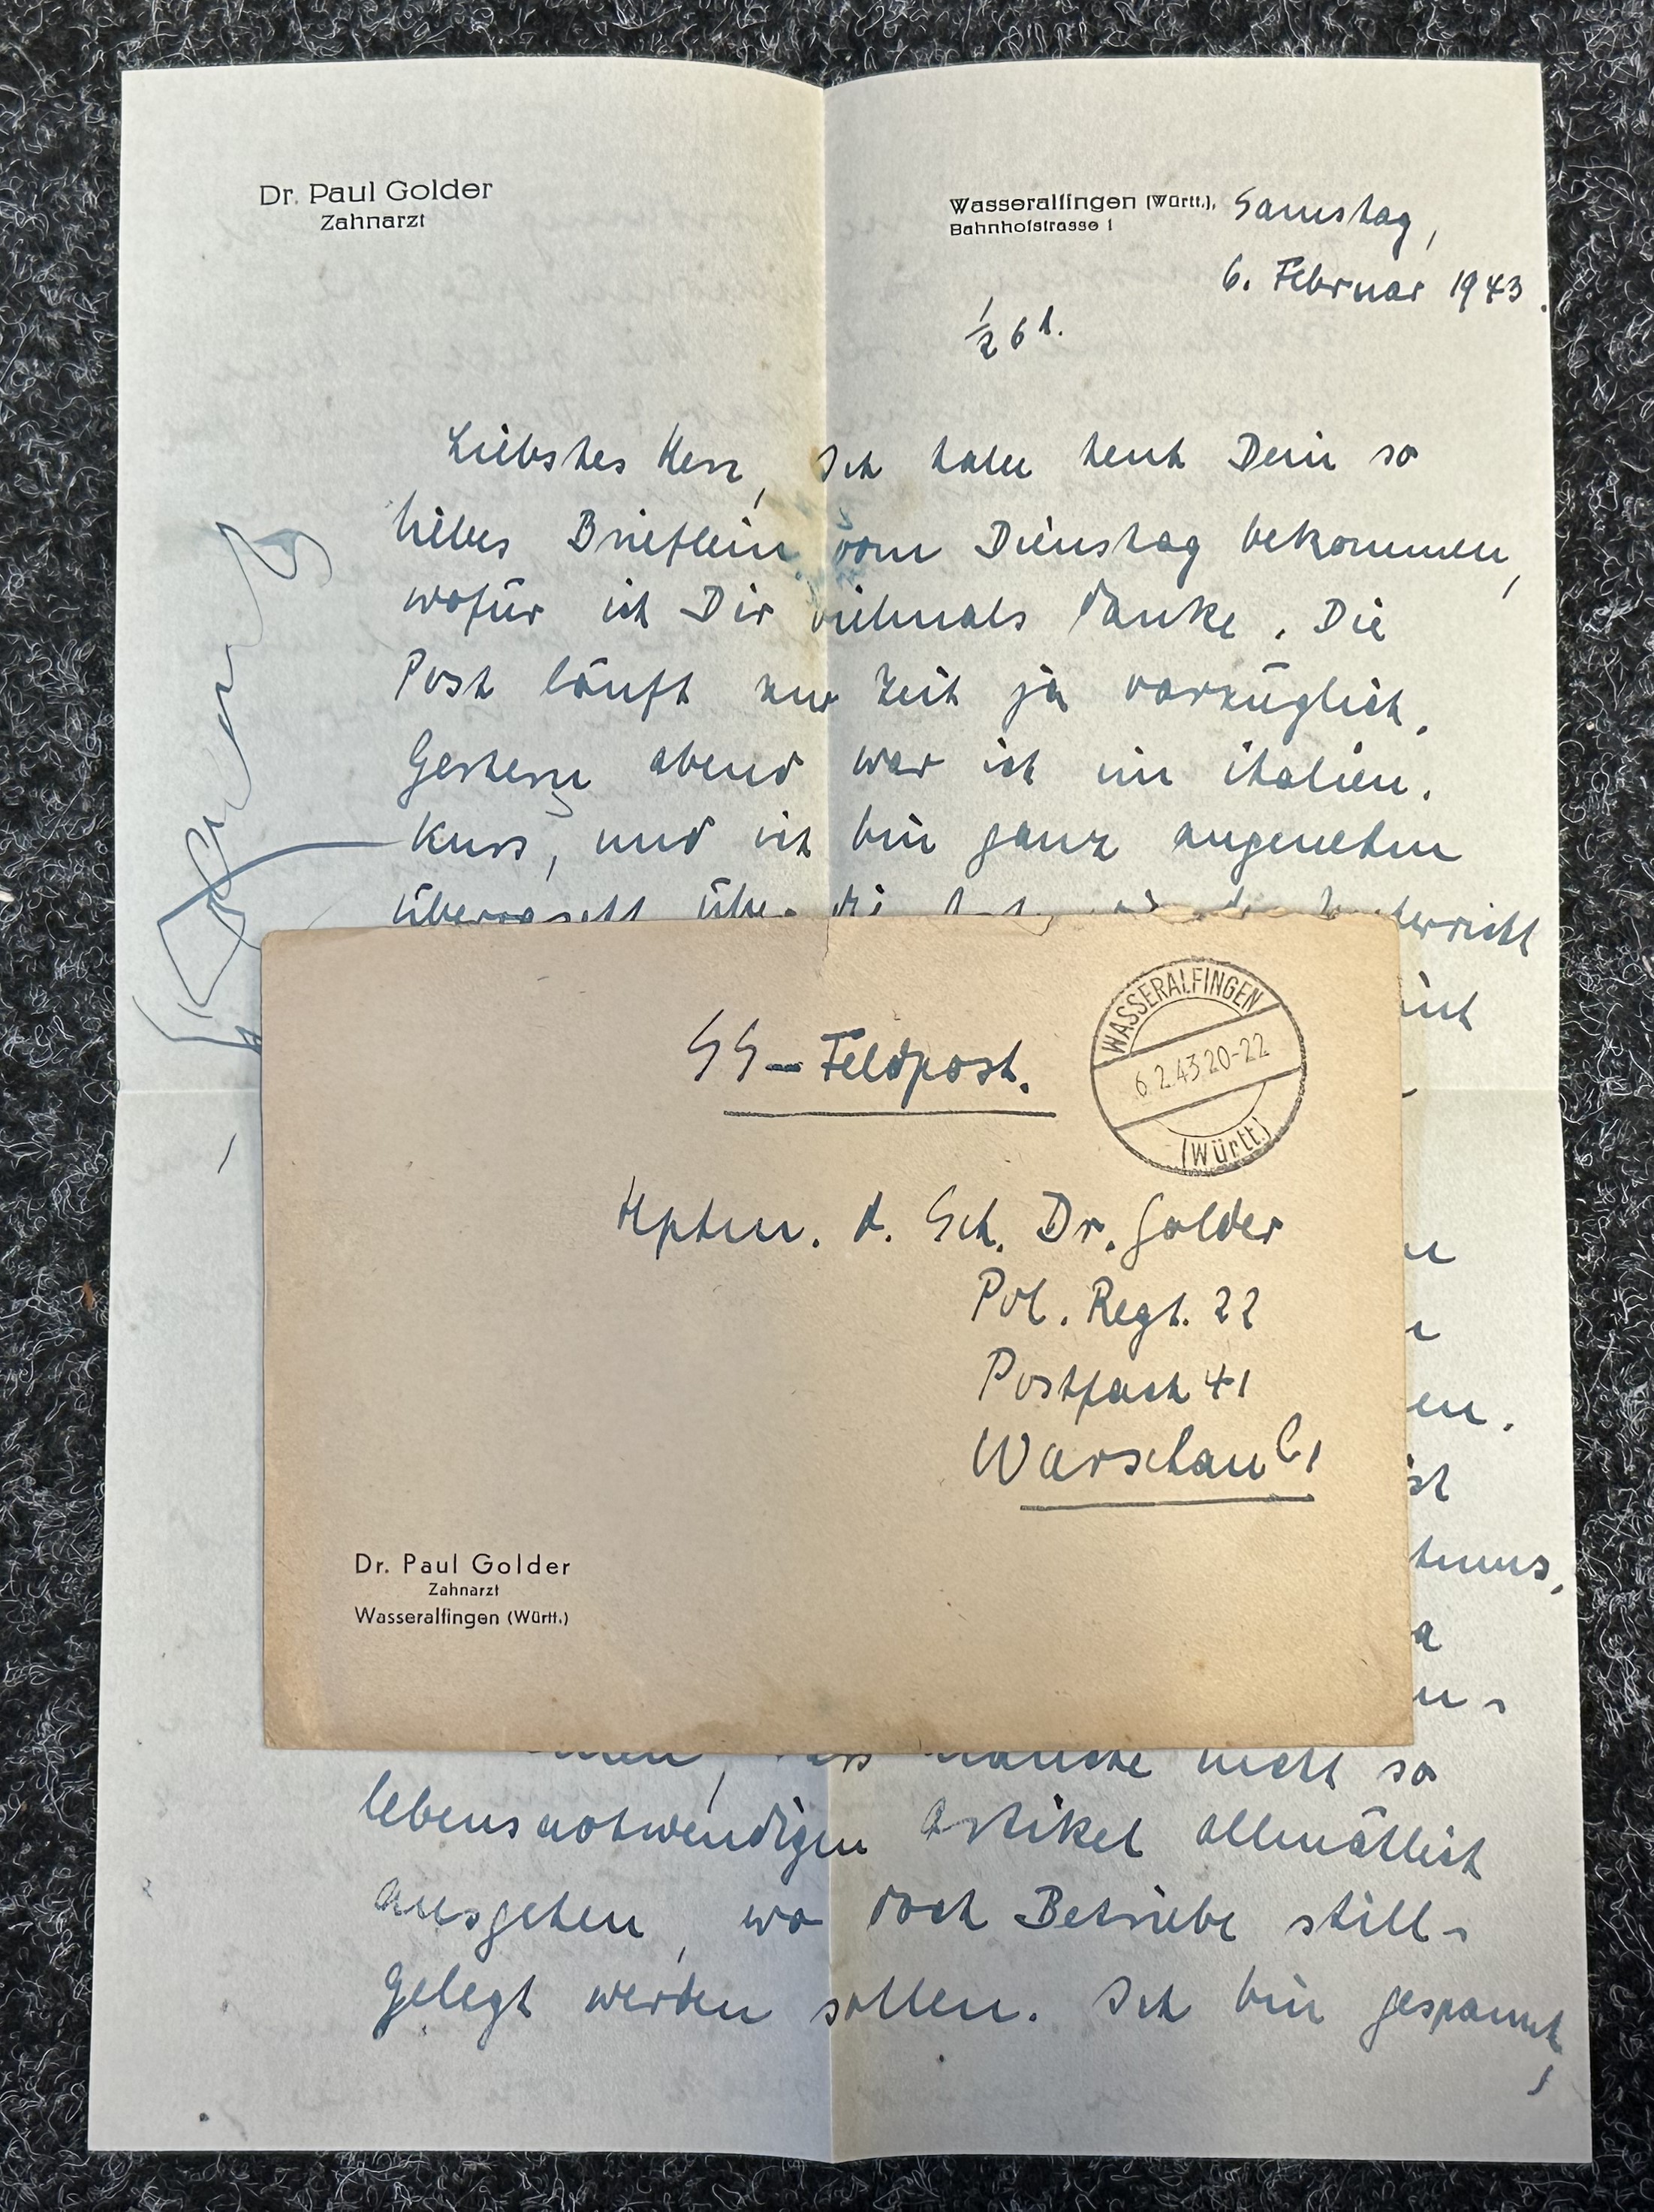 Dr. Paul Golder
Zahnarzt
Wasseralfingen (Württ.), Samstag,
Bahnhofstrasse 1
6. Februar 1943.
½ 6 h.
Liebstes Herz, Ich habe heut Dein so
liebes Brieflein vom Dienstag bekommen,
wofür ich Dir vielmals danke. Die
Post läuft zur Zeit ja vorzüglich.
Gestern abend war ich im italien.
Kurs, und ich bin ganz angenehm
überrascht über die
SS-Feldpost.
WASSERALFINGEN
6.2.43.20-22
(Württ)
Hptm. d. Sch. Dr. Golder
Pol. Regt. 22
Postfach 41
Warschau C1
Dr. Paul Golder
Zahnarzt
Wasseralfingen (Württ.)
nicht so
lebensnotwendigen Artikel allmählich
ausgehen, wo doch Betriebe still-
gelegt werden sollen. Ich bin gespannt,